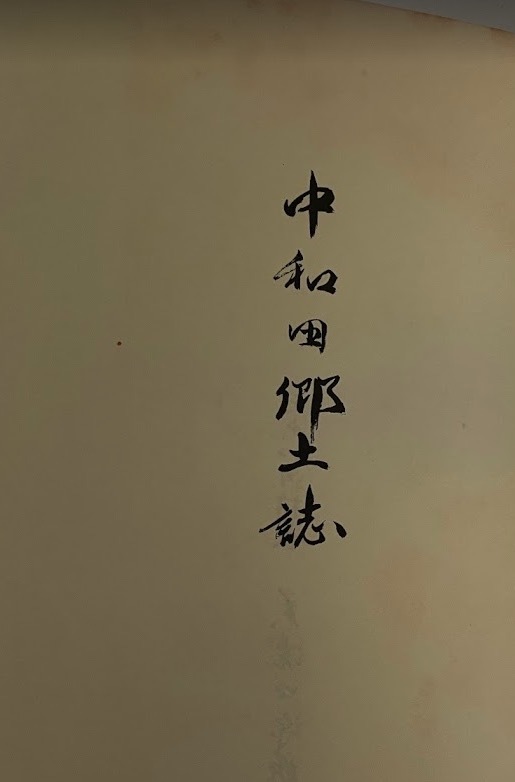 中和田郷土誌